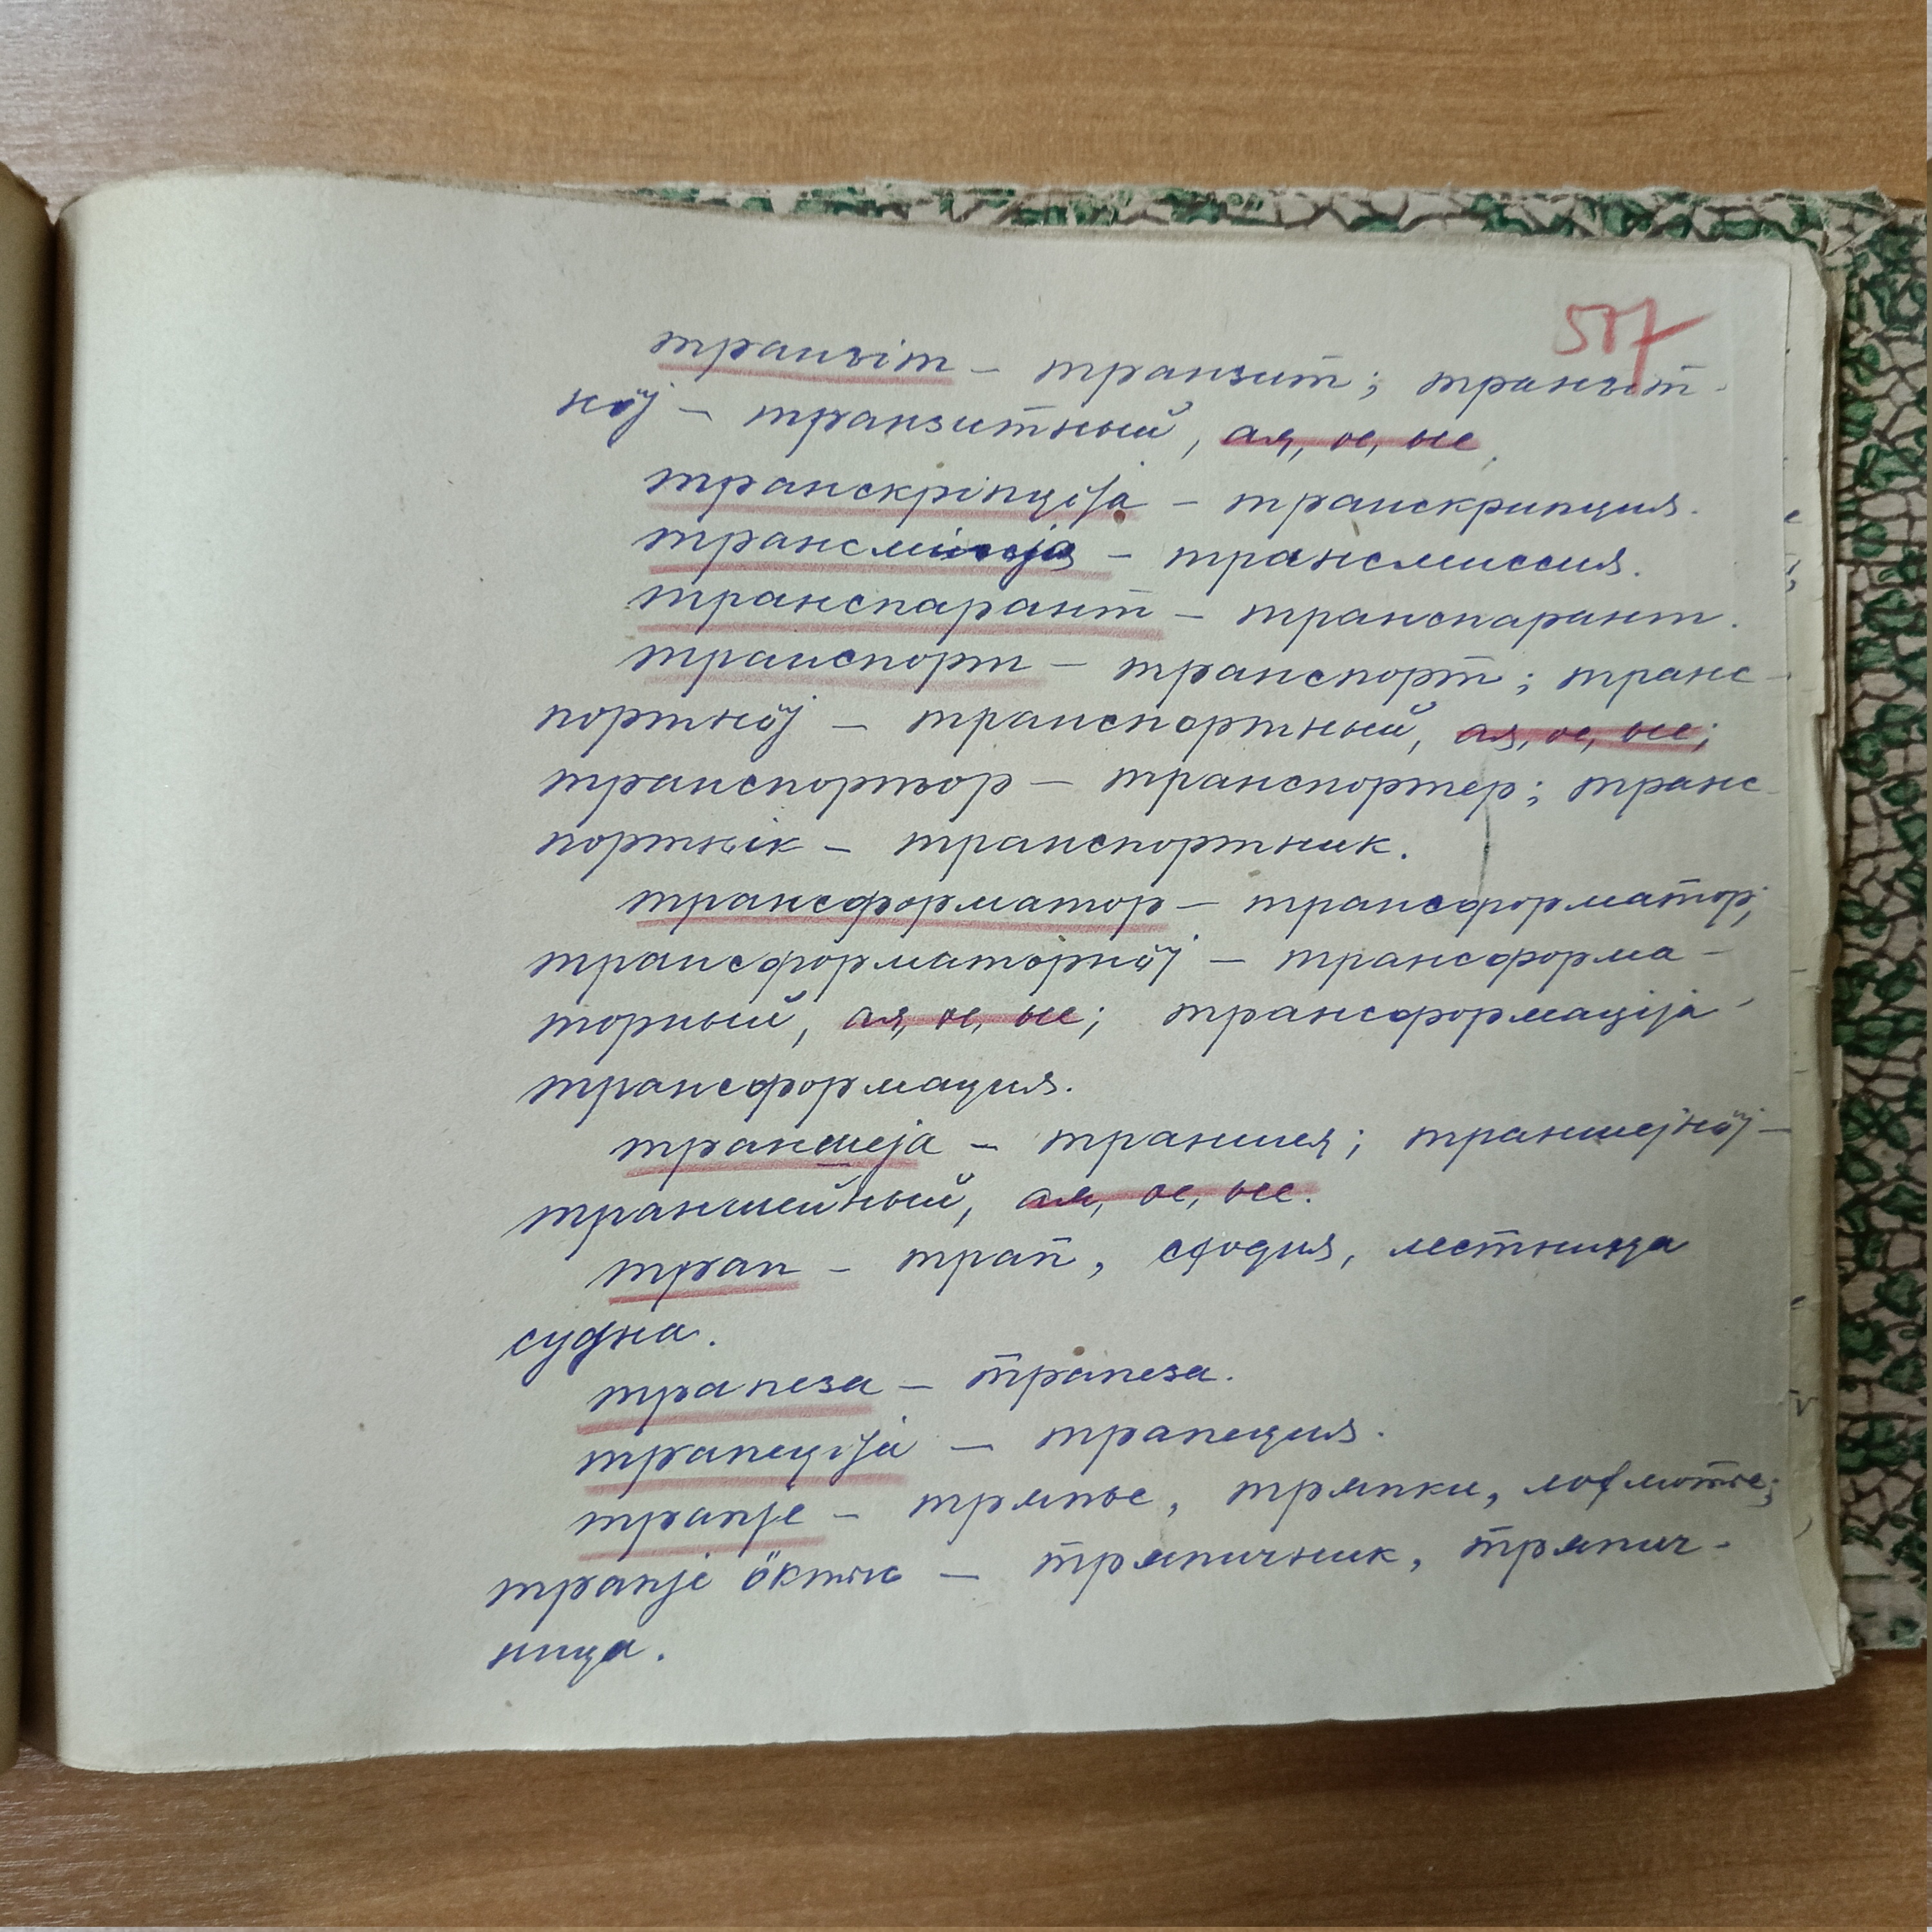 517
транзіт – транзит; транзіт-
нӧj – транзитный, ая, ое, ые.
транскріпціја – транскрипция.
трансмісија – трансмиссия.
транспарант – транспарант.
транспорт – транспорт; транс-
портнӧj – транспортный, ая, ое, ые;
транспортьор – транспортер; транс-
портнік – транспортник.
трансформатор – трансформатор;
трансформаторнӧj – трансформа-
торный, ая, ое, ые; трансформаціја –
трансформация.
траншеја – траншея; траншеjнӧj –
траншейный, ая, ое, ые.
трап – трап, сходня, лестница
судна.
трапеза – трапеза.
трапеціја – трапеция.
трапjе – тряпье, тряпки, лохмотье;
трапjе ӧктыс – тряпичник, тряпич-
ница.